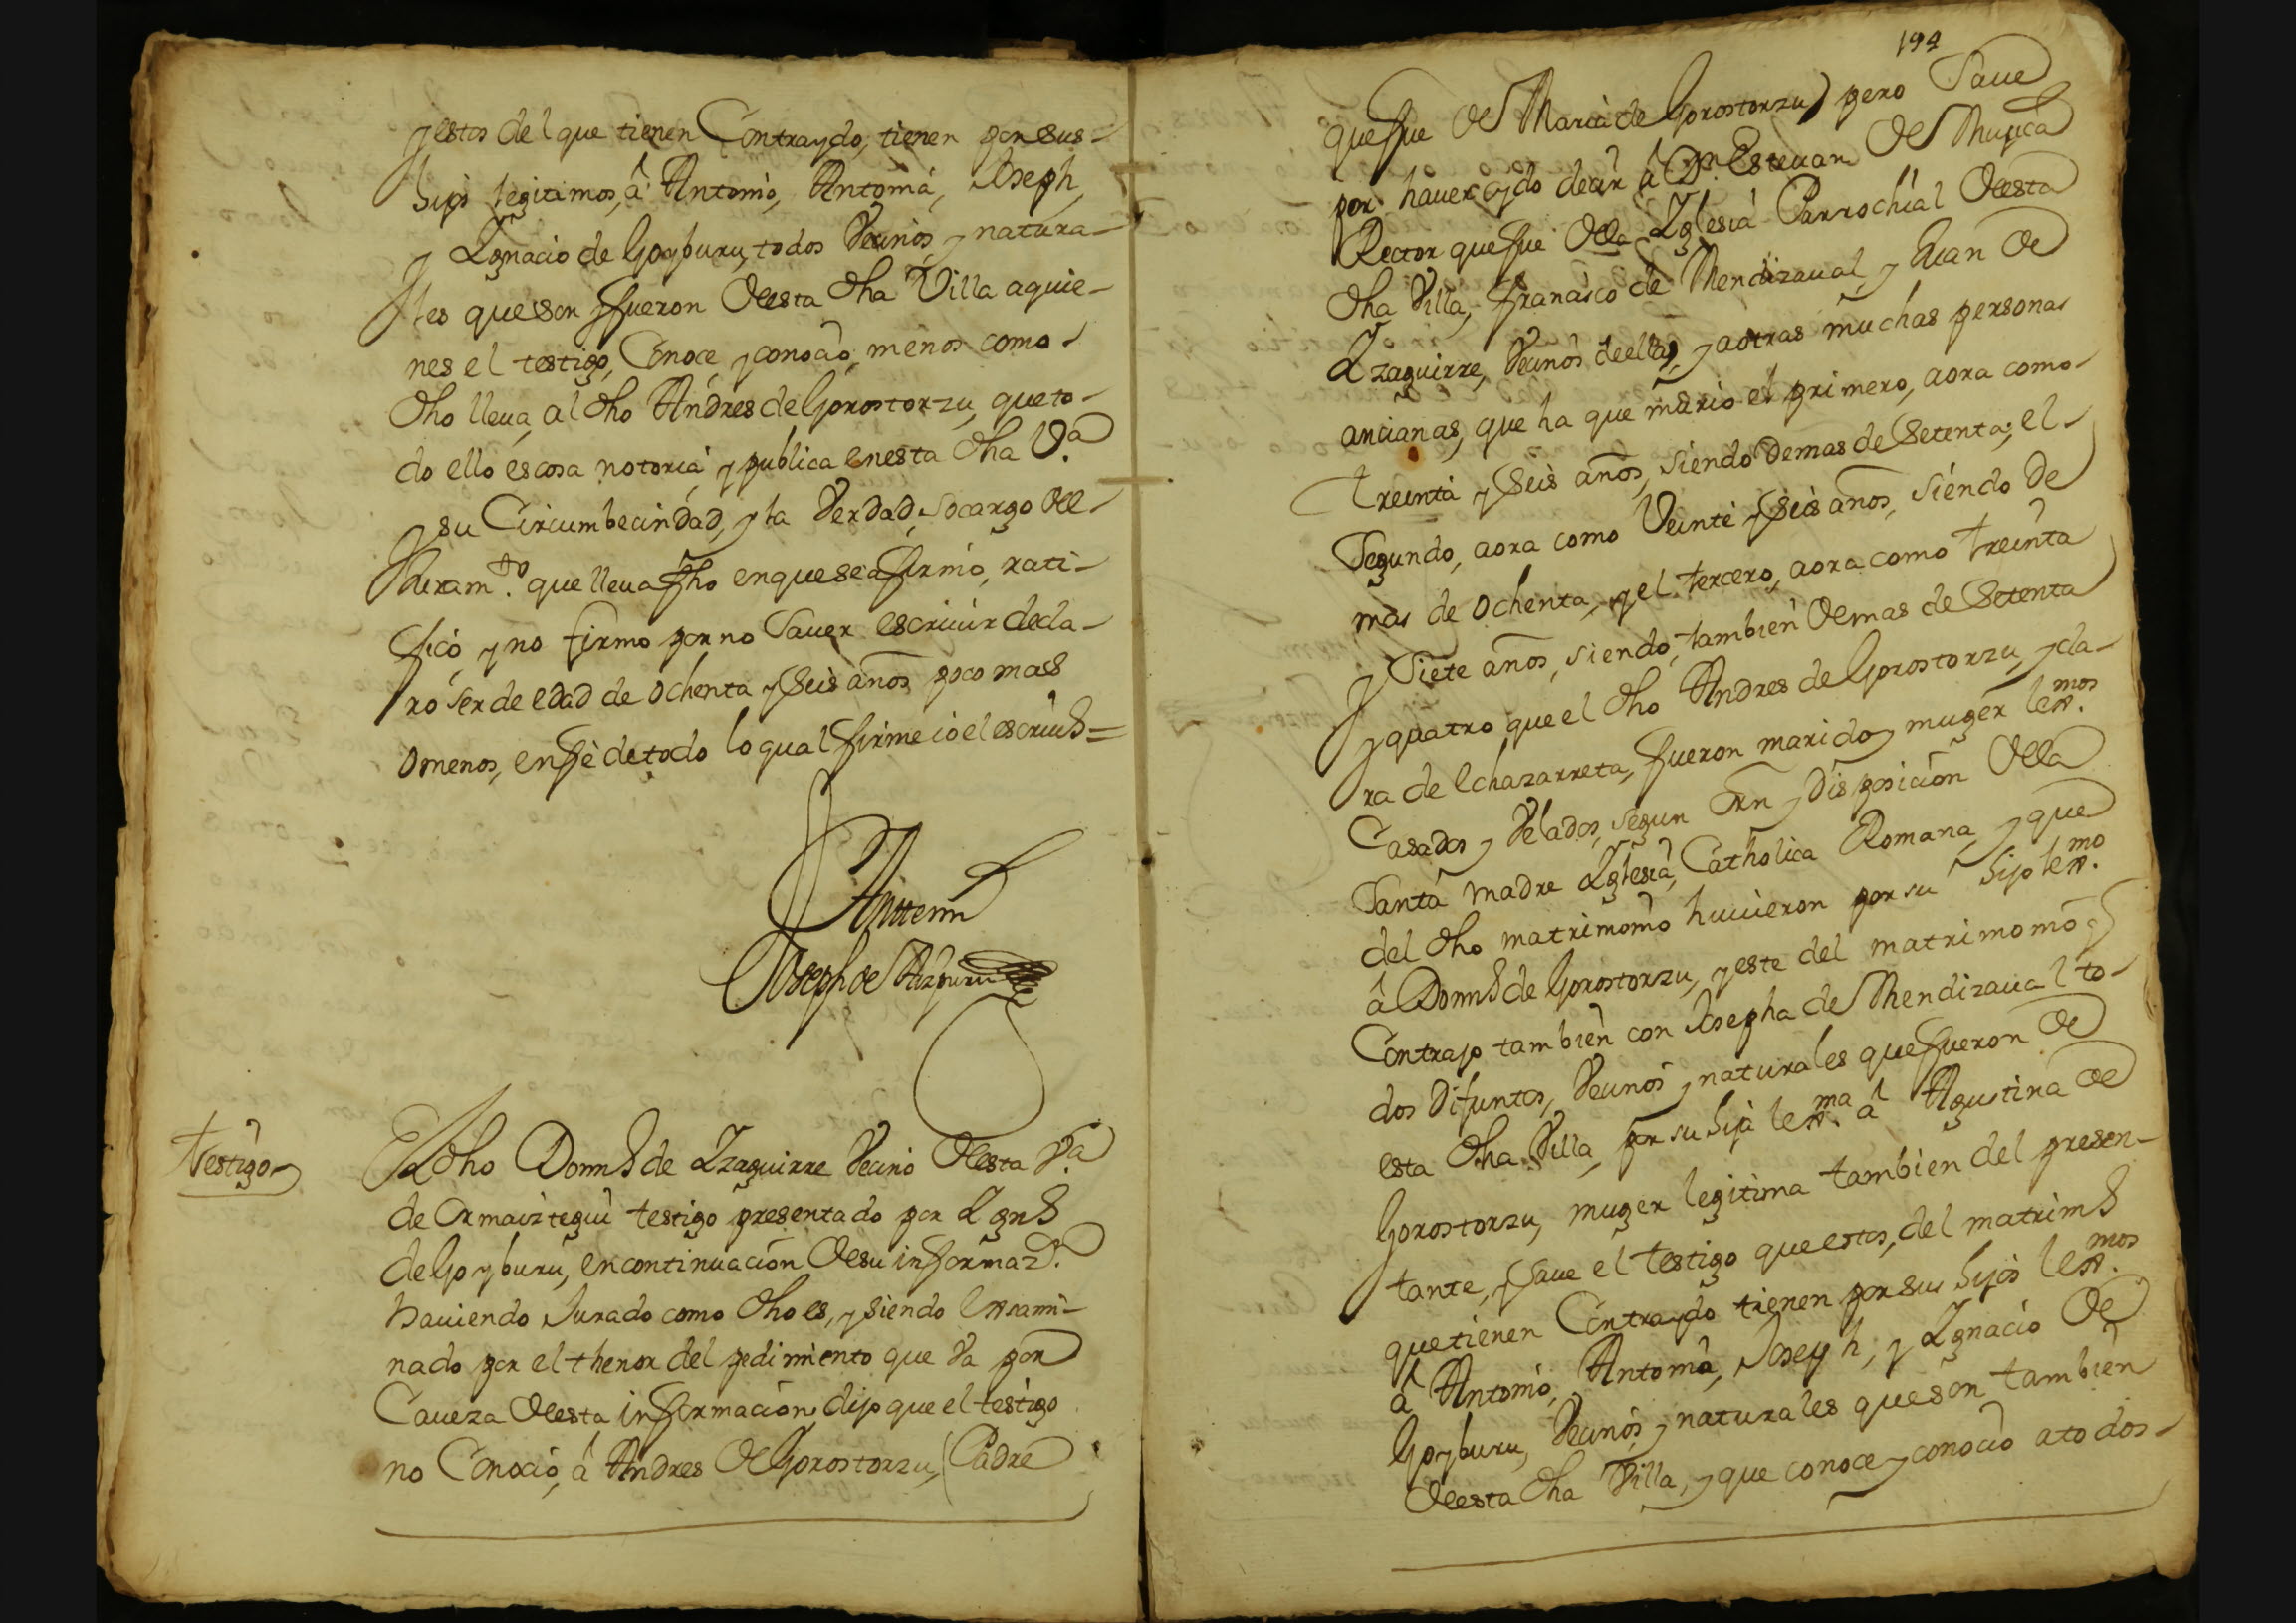 y estos del que tienen Contraydo, tienen por sus-
hijos legitimos, â Antonio, Antonia, Joseph,
y Ygnacio de Goyburu, todos Vecinos, y natura-
les que son y fueron desta dha Villa aquie-
nes el testigo, Conoce, y conocio, menos como
dho lleua, al dho Andres de Gorostorzu, que to-
do ello es cosa notoria y publica en esta dha Vª.
y su Circumbecindad, y la Verdad, Socargo del
Juramto. que lleua fho en que se afirmò, rati-
ficò y no firmo por no Sauer escriuir decla-
rò ser de edad de ochenta y Seis años poco mas
o menos, en fè de todo lo qual firme io el escriuo =
Antemi
Joseph de Aizpuru
testigo
El dho Domo de Yzaguirre Vecino desta Vª.
de Ormaiztegui testigo presentado por Ygno
de Goyburu, en continuacion de su informazn.
hauiendo Jurado como dho es, y siendo exsami-
nado por el thenor del pedimiento que Va por
Caueza desta informacion, dijo que el testigo
no Conocio, â Andres de Gorostorzu, (Padre
194
que fue de Maria de Gorostorzu) pero Saue
por hauer oydo decir â Dn. Esteuan de Mugica
Rector que fue dela Yglesia Parrochial desta
dha Villa, Francisco de Mendizaual, y Juan de
Yzaguirre, Vecinos de ella, y a otras muchas personas
ancianas, que ha que muriò el primero, aora como
treinta y Seis años, siendo de mas de Setenta; el
Segundo, aora como Veinte y Seis años, siendo de
mas de ochenta, y el tercero, aora como treinta
y Siete años, siendo, tambien de mas de Setenta
y quatro que el dho Andres de Gorostorzu, y cla-
ra de echazarreta, fueron marido y muger lexmos.
Casados y Velados, segun orn y Disposicion dela
Santa madre Yglesia, Catholica Romana, y que
del dho matrimonio huuieron por su hijo lexmo.
â Domo de Gorostorzu, y este del matrimonio q
Contrajo tambien con Josepha de Mendizaual to-
dos Difuntos, Vecinos y naturales que fueron de
esta dha Villa, por su hija lexma. â Agustina de
Gorostorzu, muger legitima tambien del presen-
tante, y Saue el testigo que estos, del matrimo
que tienen Contraydo tienen por sus hijos lexmos.
â Antonio, Antonia, Joseph, y Ygnacio de
Goyburu, Vecinos, y naturales que son tambien
desta dha Villa, y que conoce y conociò a todos